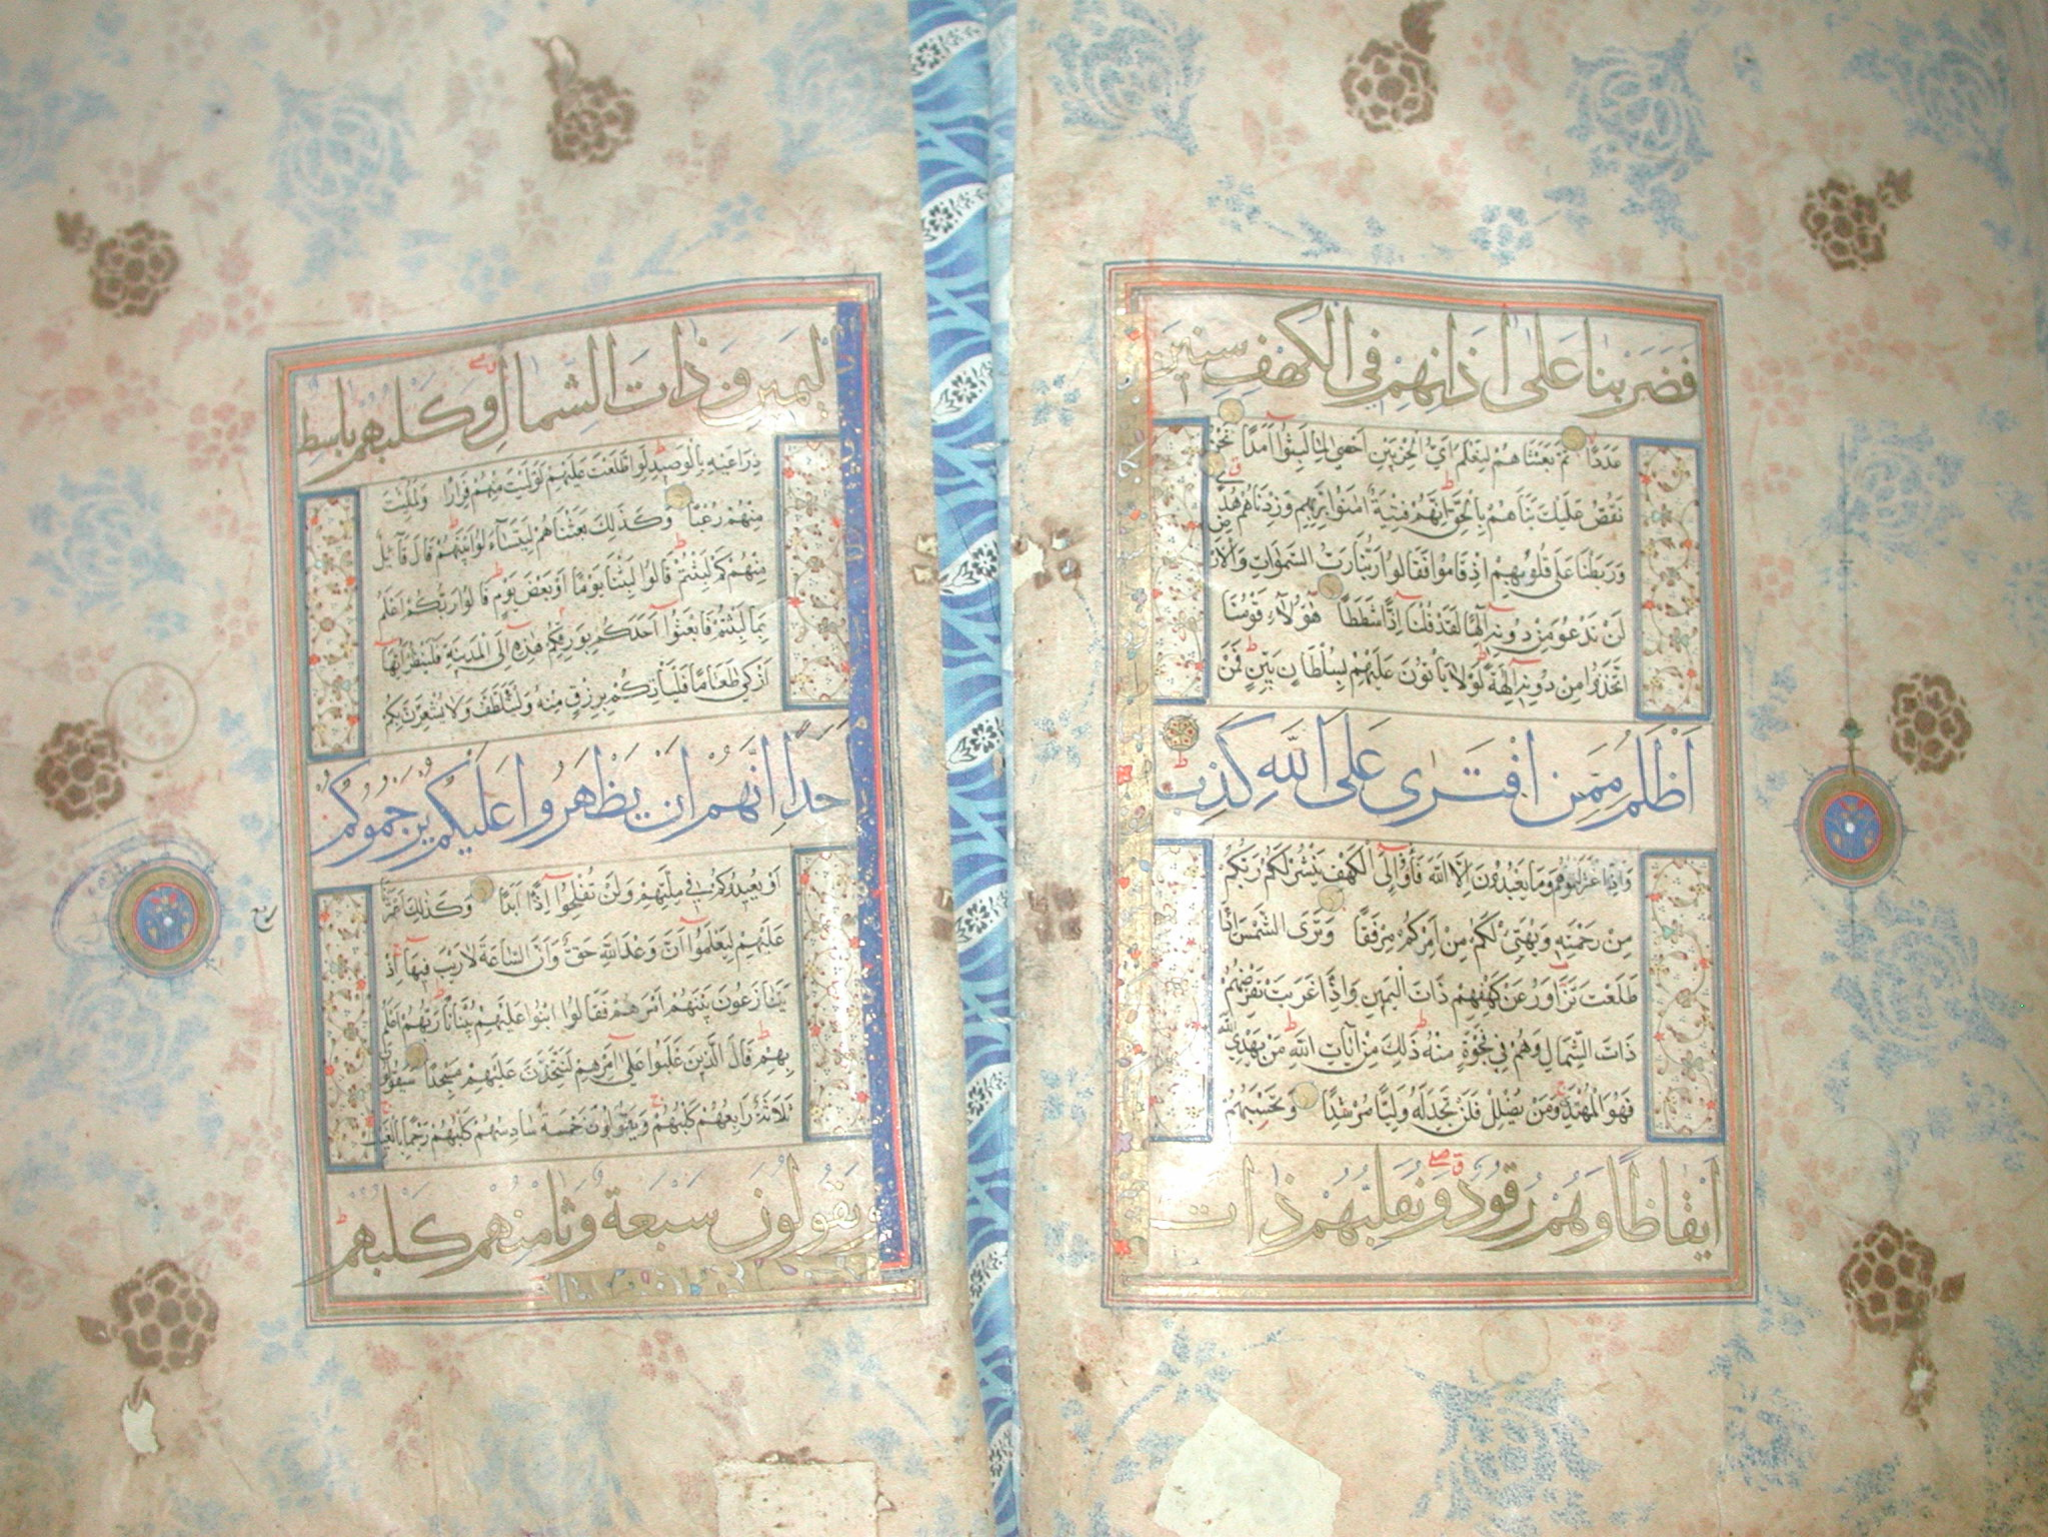 فَضَرَبْنَا عَلَىٰ اٰذَانِهِمْ فِي الْكَهْفِ سِنِينَ
عَدَدًا ثُمَّ بَعَثْنَاهُمْ لِنَعْلَمَ اَيُّ الْحِزْبَيْنِ اَحْصَىٰ لِمَا لَبِثُوٓا اَمَدًا نَحْنُ
نَقُصُّ عَلَيْكَ نَبَاَهُمْ بِالْحَقِّ اِنَّهُمْ فِتْيَةٌ اٰمَنُوا بِرَبِّهِمْ وَزِدْنَاهُمْ هُدًى
وَرَبَطْنَا عَلَىٰ قُلُوبِهِمْ اِذْ قَامُوا فَقَالُوا رَبُّنَا رَبُّ السَّمٰوَاتِ وَالْاَرْضِ
لَنْ نَدْعُوَ مِنْ دُونِهٖٓ اِلٰهًا لَقَدْ قُلْنَآ اِذًا شَطَطًا هٰٓؤُلَآءِ قَوْمُنَا
اتَّخَذُوا مِنْ دُونِهٖٓ اٰلِهَةً لَوْلَا يَاْتُونَ عَلَيْهِمْ بِسُلْطَانٍ بَيِّنٍ فَمَنْ
اَظْلَمُ مِمَّنِ افْتَرٰى عَلَى اللّٰهِ كَذِبًا
وَاِذِ اعْتَزَلْتُمُوهُمْ وَمَا يَعْبُدُونَ اِلَّا اللّٰهَ فَأْوٓا اِلَى الْكَهْفِ يَنْشُرْ لَكُمْ رَبُّكُمْ
مِنْ رَحْمَتِهٖ وَيُهَيِّئْ لَكُمْ مِنْ اَمْرِكُمْ مِرْفَقًا وَتَرَى الشَّمْسَ اِذَا
طَلَعَتْ تَزَاوَرُ عَنْ كَهْفِهِمْ ذَاتَ الْيَمِينِ وَاِذَا غَرَبَتْ تَقْرِضُهُمْ
ذَاتَ الشِّمَالِ وَهُمْ فِي فَجْوَةٍ مِنْهُ ذٰلِكَ مِنْ اٰيَاتِ اللّٰهِ مَنْ يَهْدِي اللّٰهُ
فَهُوَ الْمُهْتَدِ وَمَنْ يُضْلِلْ فَلَنْ تَجِدَ لَهُ وَلِيًّا مُرْشِدًا وَتَحْسَبُهُمْ
اَيْقَاظًا وَهُمْ رُقُودٌ وَنُقَلِّبُهُمْ ذَاتَ
الْيَمِينِ وَذَاتَ الشِّمَالِ وَكَلْبُهُمْ بَاسِطٌ
ذِرَاعَيْهِ بِالْوَصِيدِ لَوِ اطَّلَعْتَ عَلَيْهِمْ لَوَلَّيْتَ مِنْهُمْ فِرَارًا وَلَمُلِئْتَ
مِنْهُمْ رُعْبًا وَكَذٰلِكَ بَعَثْنَاهُمْ لِيَتَسَآءَلُوا بَيْنَهُمْ قَالَ قَآئِلٌ
مِنْهُمْ كَمْ لَبِثْتُمْ قَالُوا لَبِثْنَا يَوْمًا اَوْ بَعْضَ يَوْمٍ قَالُوا رَبُّكُمْ اَعْلَمُ
بِمَا لَبِثْتُمْ فَابْعَثُوٓا اَحَدَكُمْ بِوَرِقِكُمْ هٰذِهٖٓ اِلَى الْمَدِينَةِ فَلْيَنْظُرْ اَيُّهَآ
اَزْكٰى طَعَامًا فَلْيَاْتِكُمْ بِرِزْقٍ مِنْهُ وَلْيَتَلَطَّفْ وَلَا يُشْعِرَنَّ بِكُمْ
اَحَدًا اِنَّهُمْ اِنْ يَظْهَرُوا عَلَيْكُمْ يَرْجُمُوكُمْ
اَوْ يُعِيدُوكُمْ فِي مِلَّتِهِمْ وَلَنْ تُفْلِحُوٓا اِذًا اَبَدًا وَكَذٰلِكَ اَعْثَرْنَا
عَلَيْهِمْ لِيَعْلَمُوٓا اَنَّ وَعْدَ اللّٰهِ حَقٌّ وَاَنَّ السَّاعَةَ لَا رَيْبَ فِيهَآ اِذْ
يَتَنَازَعُونَ بَيْنَهُمْ اَمْرَهُمْ فَقَالُوا ابْنُوا عَلَيْهِمْ بُنْيَانًا رَبُّهُمْ اَعْلَمُ
بِهِمْ قَالَ الَّذِينَ غَلَبُوا عَلٰٓى اَمْرِهِمْ لَنَتَّخِذَنَّ عَلَيْهِمْ مَسْجِدًا سَيَقُولُونَ
ثَلَاثَةٌ رَابِعُهُمْ كَلْبُهُمْ وَيَقُولُونَ خَمْسَةٌ سَادِسُهُمْ كَلْبُهُمْ رَجْمًا بِالْغَيْبِ
وَيَقُولُونَ سَبْعَةٌ وَثَامِنُهُمْ كَلْبُهُمْ